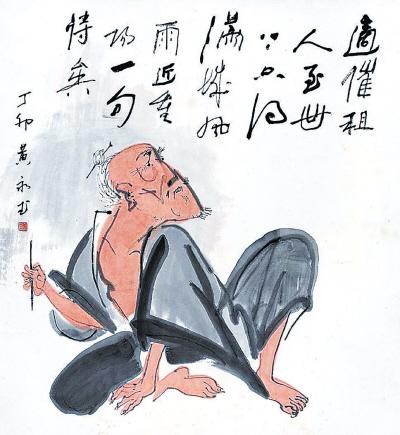 適催租
人至世
上只得
滿城風
雨近重
陽一句
詩矣
丁卯 黃永玉